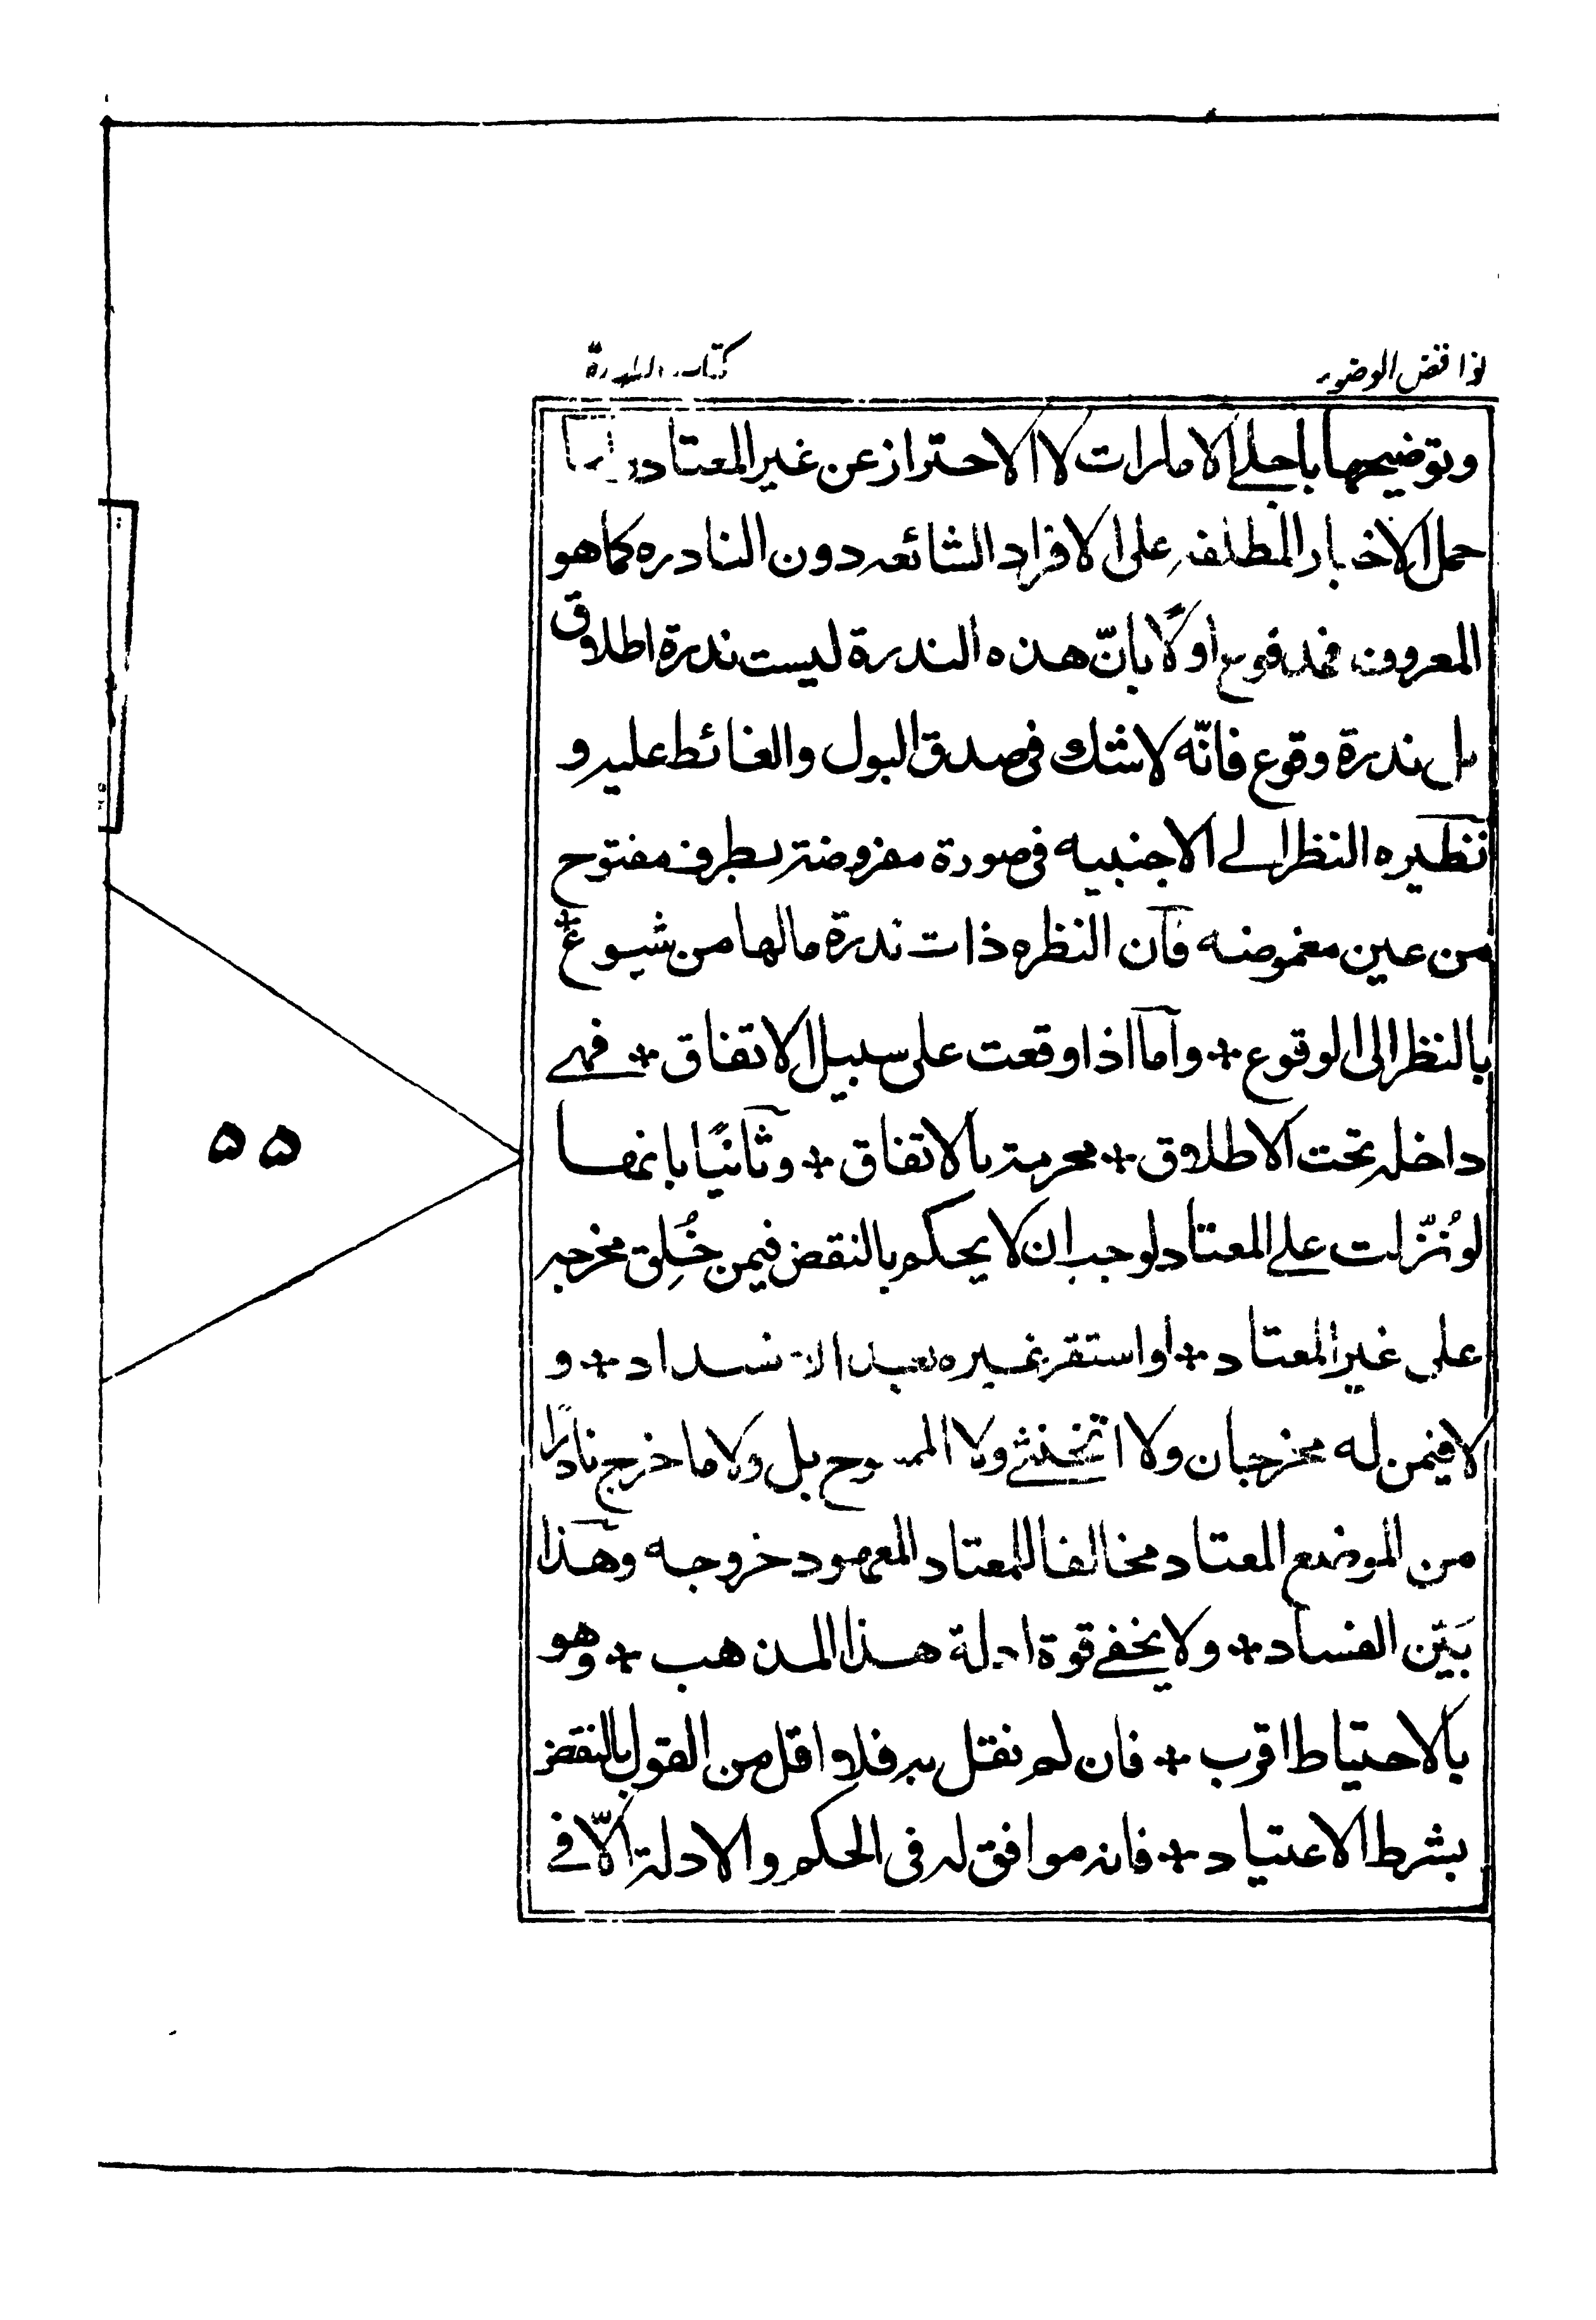 نواقض الوضوء
كتاب الطهارة
وتوضيحها باجلے الامارات لا الاحتراز عن غير المعتاد واما
حمل الاخبار المطلقه على الافراد الشائعه دون النادره كما هو
المعروف فمدفوع اولًا بانّ هذه الندرة ليست ندرة اطلاق
بل ندرة وقوع فانّه لاشك فى صدق البول والغائط عليه و
نظيره النظر الے الاجنبيه فى صورة مفروضة بطرف مفتوح
من عين مغموضه فآن النظره ذات ندرة مالها من شيوع +
بالنظر الى الوقوع + وآما اذا وقعت على سبيل الاتفاق + فهے
داخله تحت الاطلاق + محرمة بالاتفاق + وثآنيًا بانها
لو نُزّلت علے المعتاد لوجب ان لا يحكم بالنقض فيمن خُلِق مخرجه
على غير المعتاد + او استقر بغيره بعد الانسداد + و
لا فيمن له مخرجان ولا الخنثے ولا الممسوح بل ولا ما خرج نادرًا
من الموضع المعتاد مخالفا للمعتاد المعهود خروجه وهٓذا
بَيّن الفساد + ولا يخفے قوة ادلة هذا المذهب + وهو
بالاحتياط اقرب + فان لم نقل به فلا اقل من القول بالنقض
بشرط الاعتياد + فانه موافق له فى الحكم والادلة الّا فے
۵۵